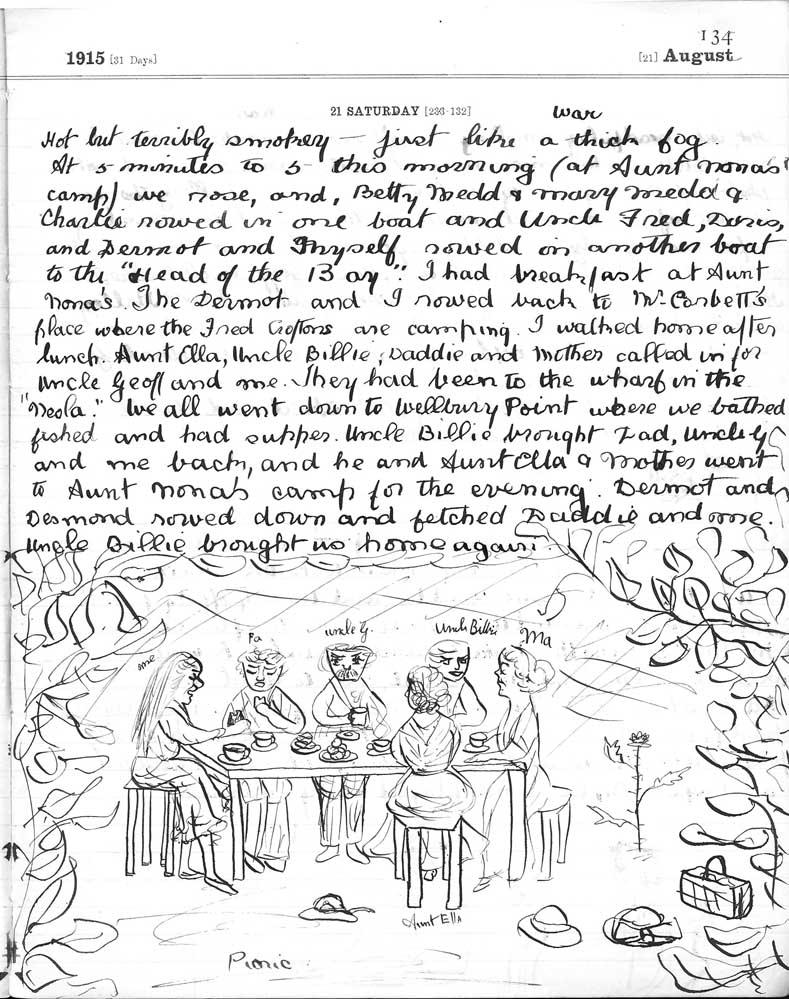 134
1915 [31 Days] [21] August
21 SATURDAY [233-132] war
Hot but terribly smokey — just like a thick fog.
At 5 minutes to 5 this morning (at Aunt Nona's
camp) we rose, and, Betty Medd & Mary Medd &
Charlie rowed in one boat and Uncle Fred, Doris,
and Dermot and Myself rowed in another boat
to the "Head of the Bay". I had breakfast at Aunt
Nona's. The Dermot and I rowed back to Mr. Corbett's
place where the Fred Croftons are camping. I walked home after
lunch. Aunt Ella, Uncle Billie, Daddie and Mother called in for
Uncle Geoff and me. They had been to the wharf in the
"Neola." We all went down to Wellbury Point where we bathed
fished and had supper. Uncle Billie brought Dad, Uncle G
and me back, and he and Aunt Ella & Mother went
to Aunt Nona's camp for the evening. Dermot and
Desmond rowed down and fetched Daddie and me.
Uncle Billie brought us home again.
me Pa Uncle G. Uncle Billie Ma
Aunt Ella
Picnic